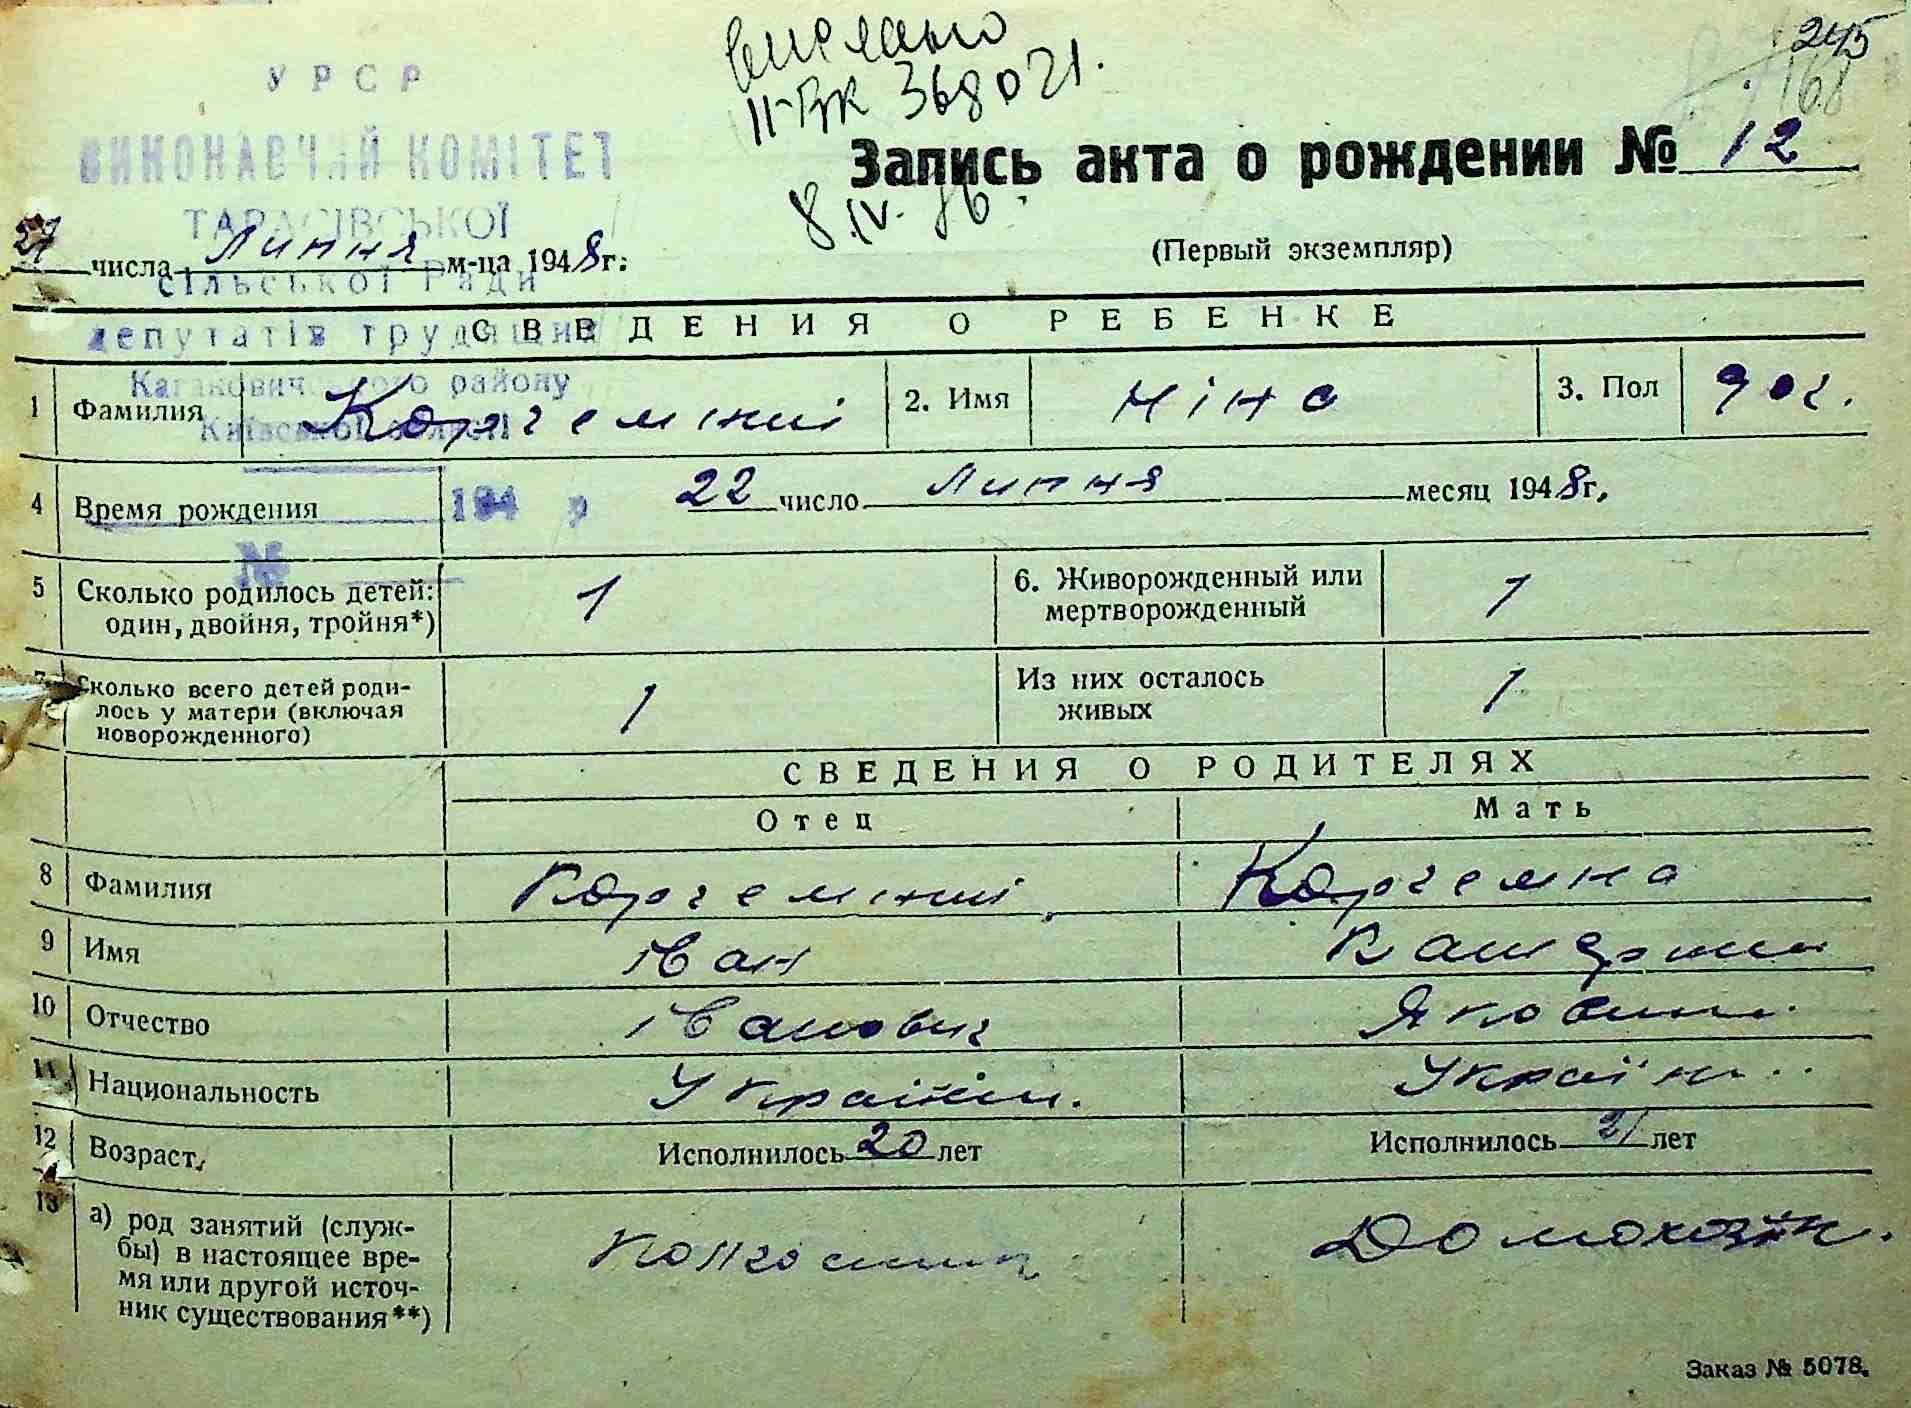 245
168
вислано
II-БК 368021.
8.IV.86.
УРСР
ВИКОНАВЧИЙ КОМІТЕТ
ТАРАСІВСЬКОЇ
сільської Ради
депутатів трудящих
Кагановичського району
Київської області
194 р
№
Запись акта о рождении № 12
(Первый экземпляр)
27 числа Липня м-ца 1948 г.
СВЕДЕНИЯ О РЕБЕНКЕ
1 Фамилия Корчемний 2. Имя Ніна 3. Пол
4 Время рождения 22 число Липня месяц 1948 г.
5 Сколько родилось детей: 1 6. Живорожденный или 1
один, двойня, тройня*) мертворожденный
7 Сколько всего детей роди- 1 Из них осталось 1
лось у матери (включая живых
новорожденного)
СВЕДЕНИЯ О РОДИТЕЛЯХ
Отец Мать
8 Фамилия Корчемний Корчемна
9 Имя Іван Катерина
10 Отчество Іванович Яковлин.
11 Национальность Українін. Україн..
12 Возраст. Исполнилось 20 лет Исполнилось 21 лет
13 а) род занятий (служ- Колгоспник Домохозяйк.
бы) в настоящее вре-
мя или другой источ-
ник существования**)
Заказ № 5078.